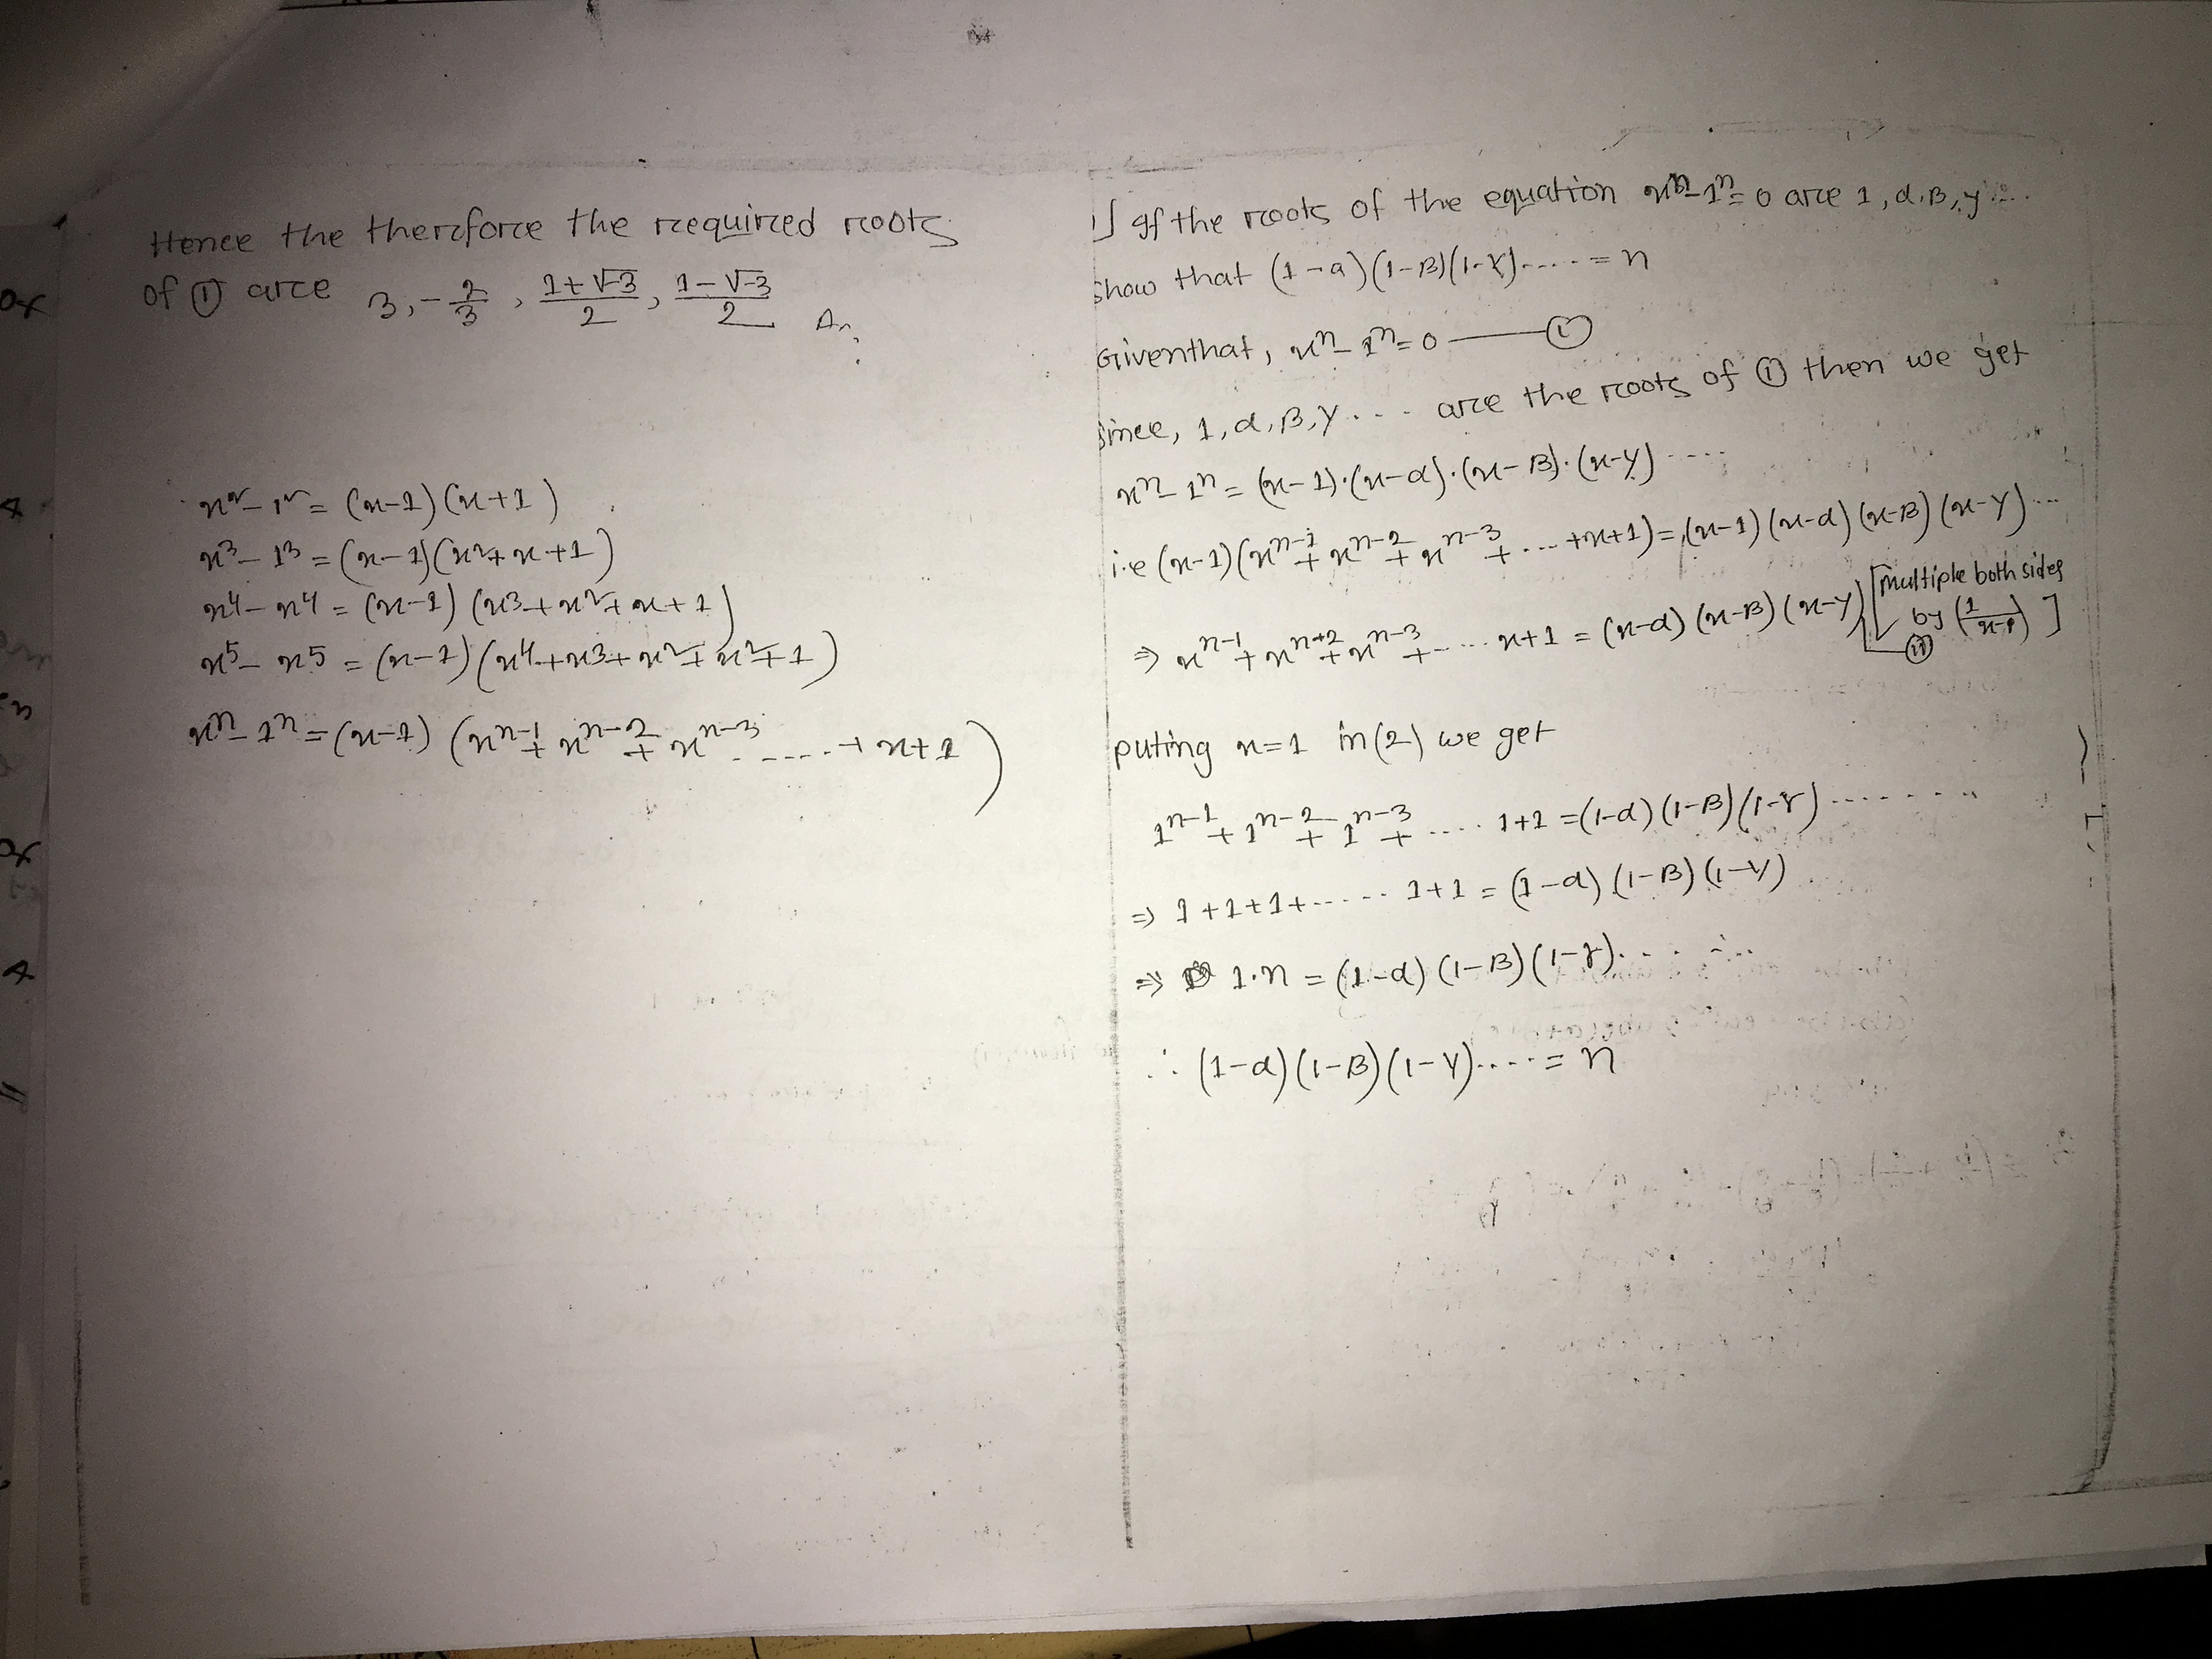 Hence the therefore the required roots
of ① are 3, -2/3, (1+√-3)/2, (1-√-3)/2 An:
x²-1² = (x-1)(x+1)
x³-1³ = (x-1)(x²+x+1)
x⁴-x⁴ = (x-1)(x³+x²+x+1)
x⁵-x⁵ = (x-1)(x⁴+x³+x²+x²+1)
xⁿ-1ⁿ = (x-1)(xⁿ⁻¹+xⁿ⁻²+xⁿ⁻³.....+x+1)
If the roots of the equation xⁿ-1ⁿ=0 are 1,α,β,γ...
Show that (1-a)(1-β)(1-γ)....=n
Given that, xⁿ-1ⁿ=0 — ①
Since, 1,α,β,γ... are the roots of ① then we get
xⁿ-1ⁿ = (x-1)·(x-α)·(x-β)·(x-γ)....
i.e (x-1)(xⁿ⁻¹+xⁿ⁻²+xⁿ⁻³+...+x+1)=(x-1)(x-α)(x-β)(x-γ)...
⇒ xⁿ⁻¹+xⁿ⁺²+xⁿ⁻³+....x+1 = (x-α)(x-β)(x-γ) [multiple both sides
by (1/(x-1))]
②
puting x=1 in (2) we get
1ⁿ⁻¹+1ⁿ⁻²+1ⁿ⁻³+....1+1=(1-α)(1-β)(1-γ)........
⇒ 1+1+1+.....1+1 = (1-α)(1-β)(1-γ)
⇒ 1·n = (1-α)(1-β)(1-γ)......
∴ (1-α)(1-β)(1-γ)....=n